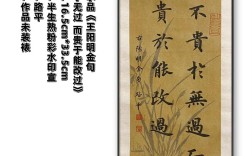 品《王阳明金句
无过 而贵于能改过》
16.5cm*33.5cm
半生熟粉彩水印宣
路平
作品未装裱
不貴於無過
貴於能改過